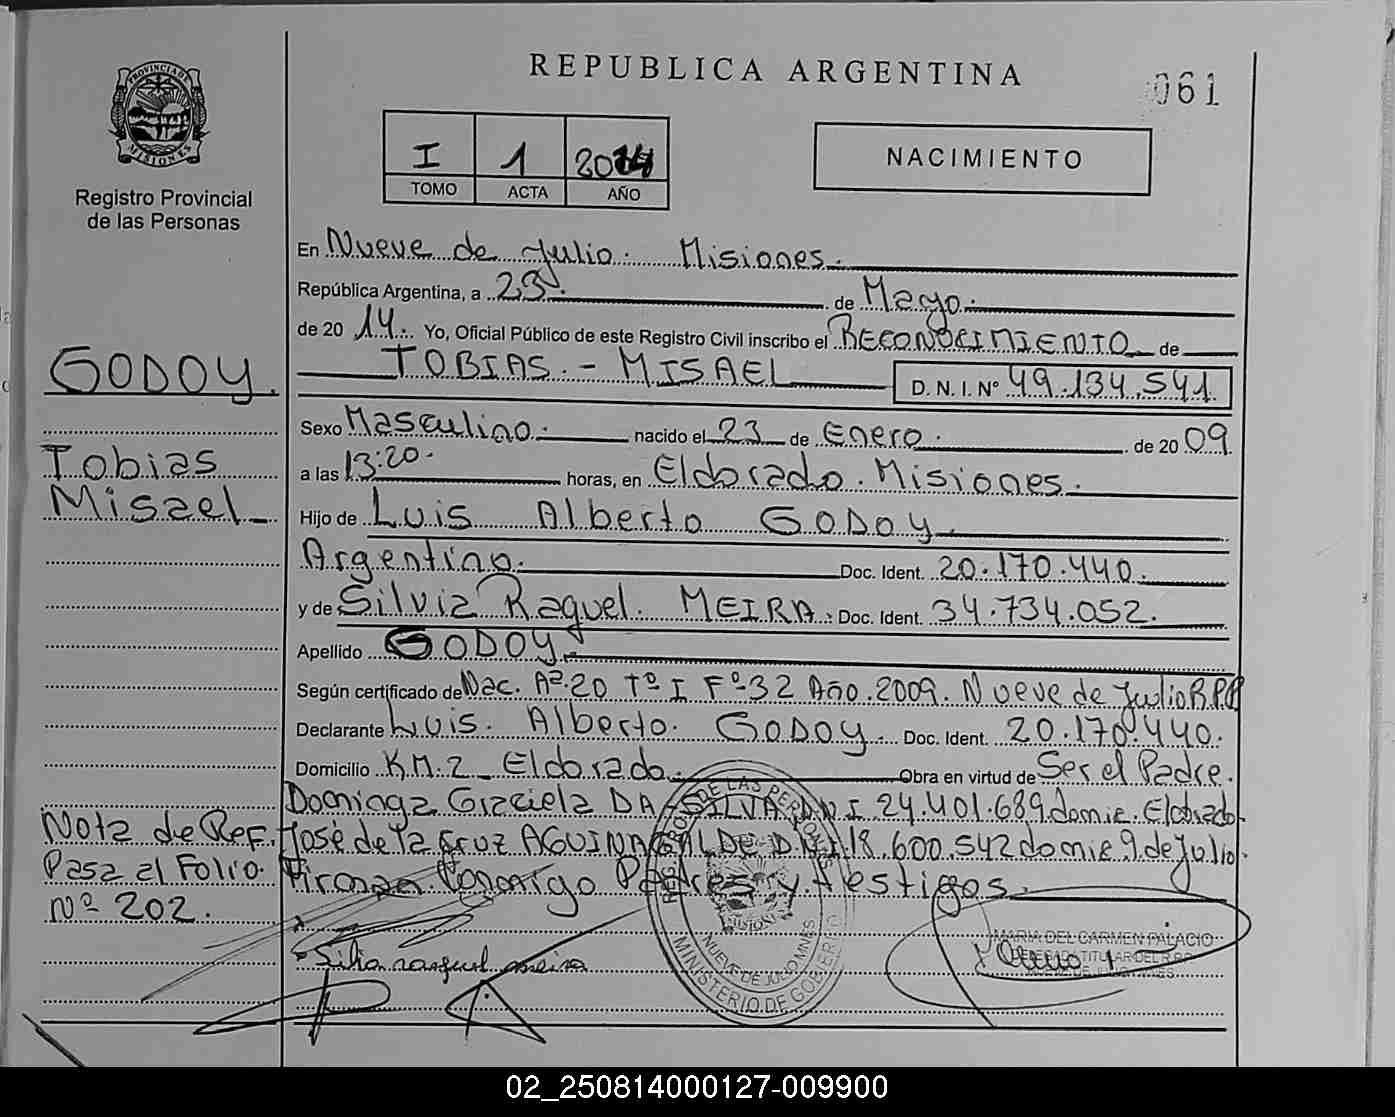 REPUBLICA ARGENTINA
061
PROVINCIA DE MISIONES
Registro Provincial
de las Personas
I 1 2014
TOMO ACTA AÑO
NACIMIENTO
En Nueve de Julio. Misiones.
República Argentina, a 23. de Mayo.
de 20 14. Yo, Oficial Público de este Registro Civil inscribo el RECONOCIMIENTO de
TOBIAS. - MISAEL D. N. I. Nº 49.134.541
GODOY.
Tobias
Misael
Sexo Masculino. nacido el 23 de Enero. de 20 09
a las 13:20. horas, en Eldorado. Misiones.
Hijo de Luis Alberto GODOY.
Argentino. Doc. Ident. 20.170.440.
y de Silvia Raquel. MEIRA. Doc. Ident. 34.734.052.
Apellido GODOY.
Según certificado de Nac. Aª.20 Tº I Fº.32 Año.2009. Nueve de Julio R.P.P
Declarante Luis. Alberto. GODOY. Doc. Ident. 20.170.440.
Domicilio KM.2 Eldorado. Obra en virtud de Ser el Padre.
Dominga Graciela DA SILVA D.N.I 24.401.689 domic. Eldorado.
José de la Cruz AGUINAGALDE D.N.I 18.600.542 domic 9 de Julio.
Firman Conmigo Padres y Testigos.
Nota de Ref.
Pasa al Folio.
Nº 202.
Silvia raquel meira
MARIA DEL CARMEN PALACIO
DELEGADA TITULAR DEL R.P.P.
NUEVE DE JULIO MNES
MINISTERIO DE GOBIERNO
02_250814000127-009900